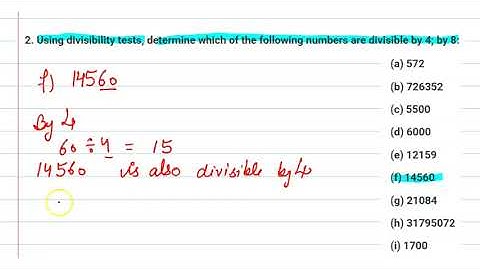 2. Using divisibility tests, determine which of the following numbers are divisible by 4; by 8:
(a) 572
(b) 726352
(c) 5500
(d) 6000
(e) 12159
(f) 14560
(g) 21084
(h) 31795072
(i) 1700
f) 14560
By 4
60 ÷ 4 = 15
14560 is also divisible by 4